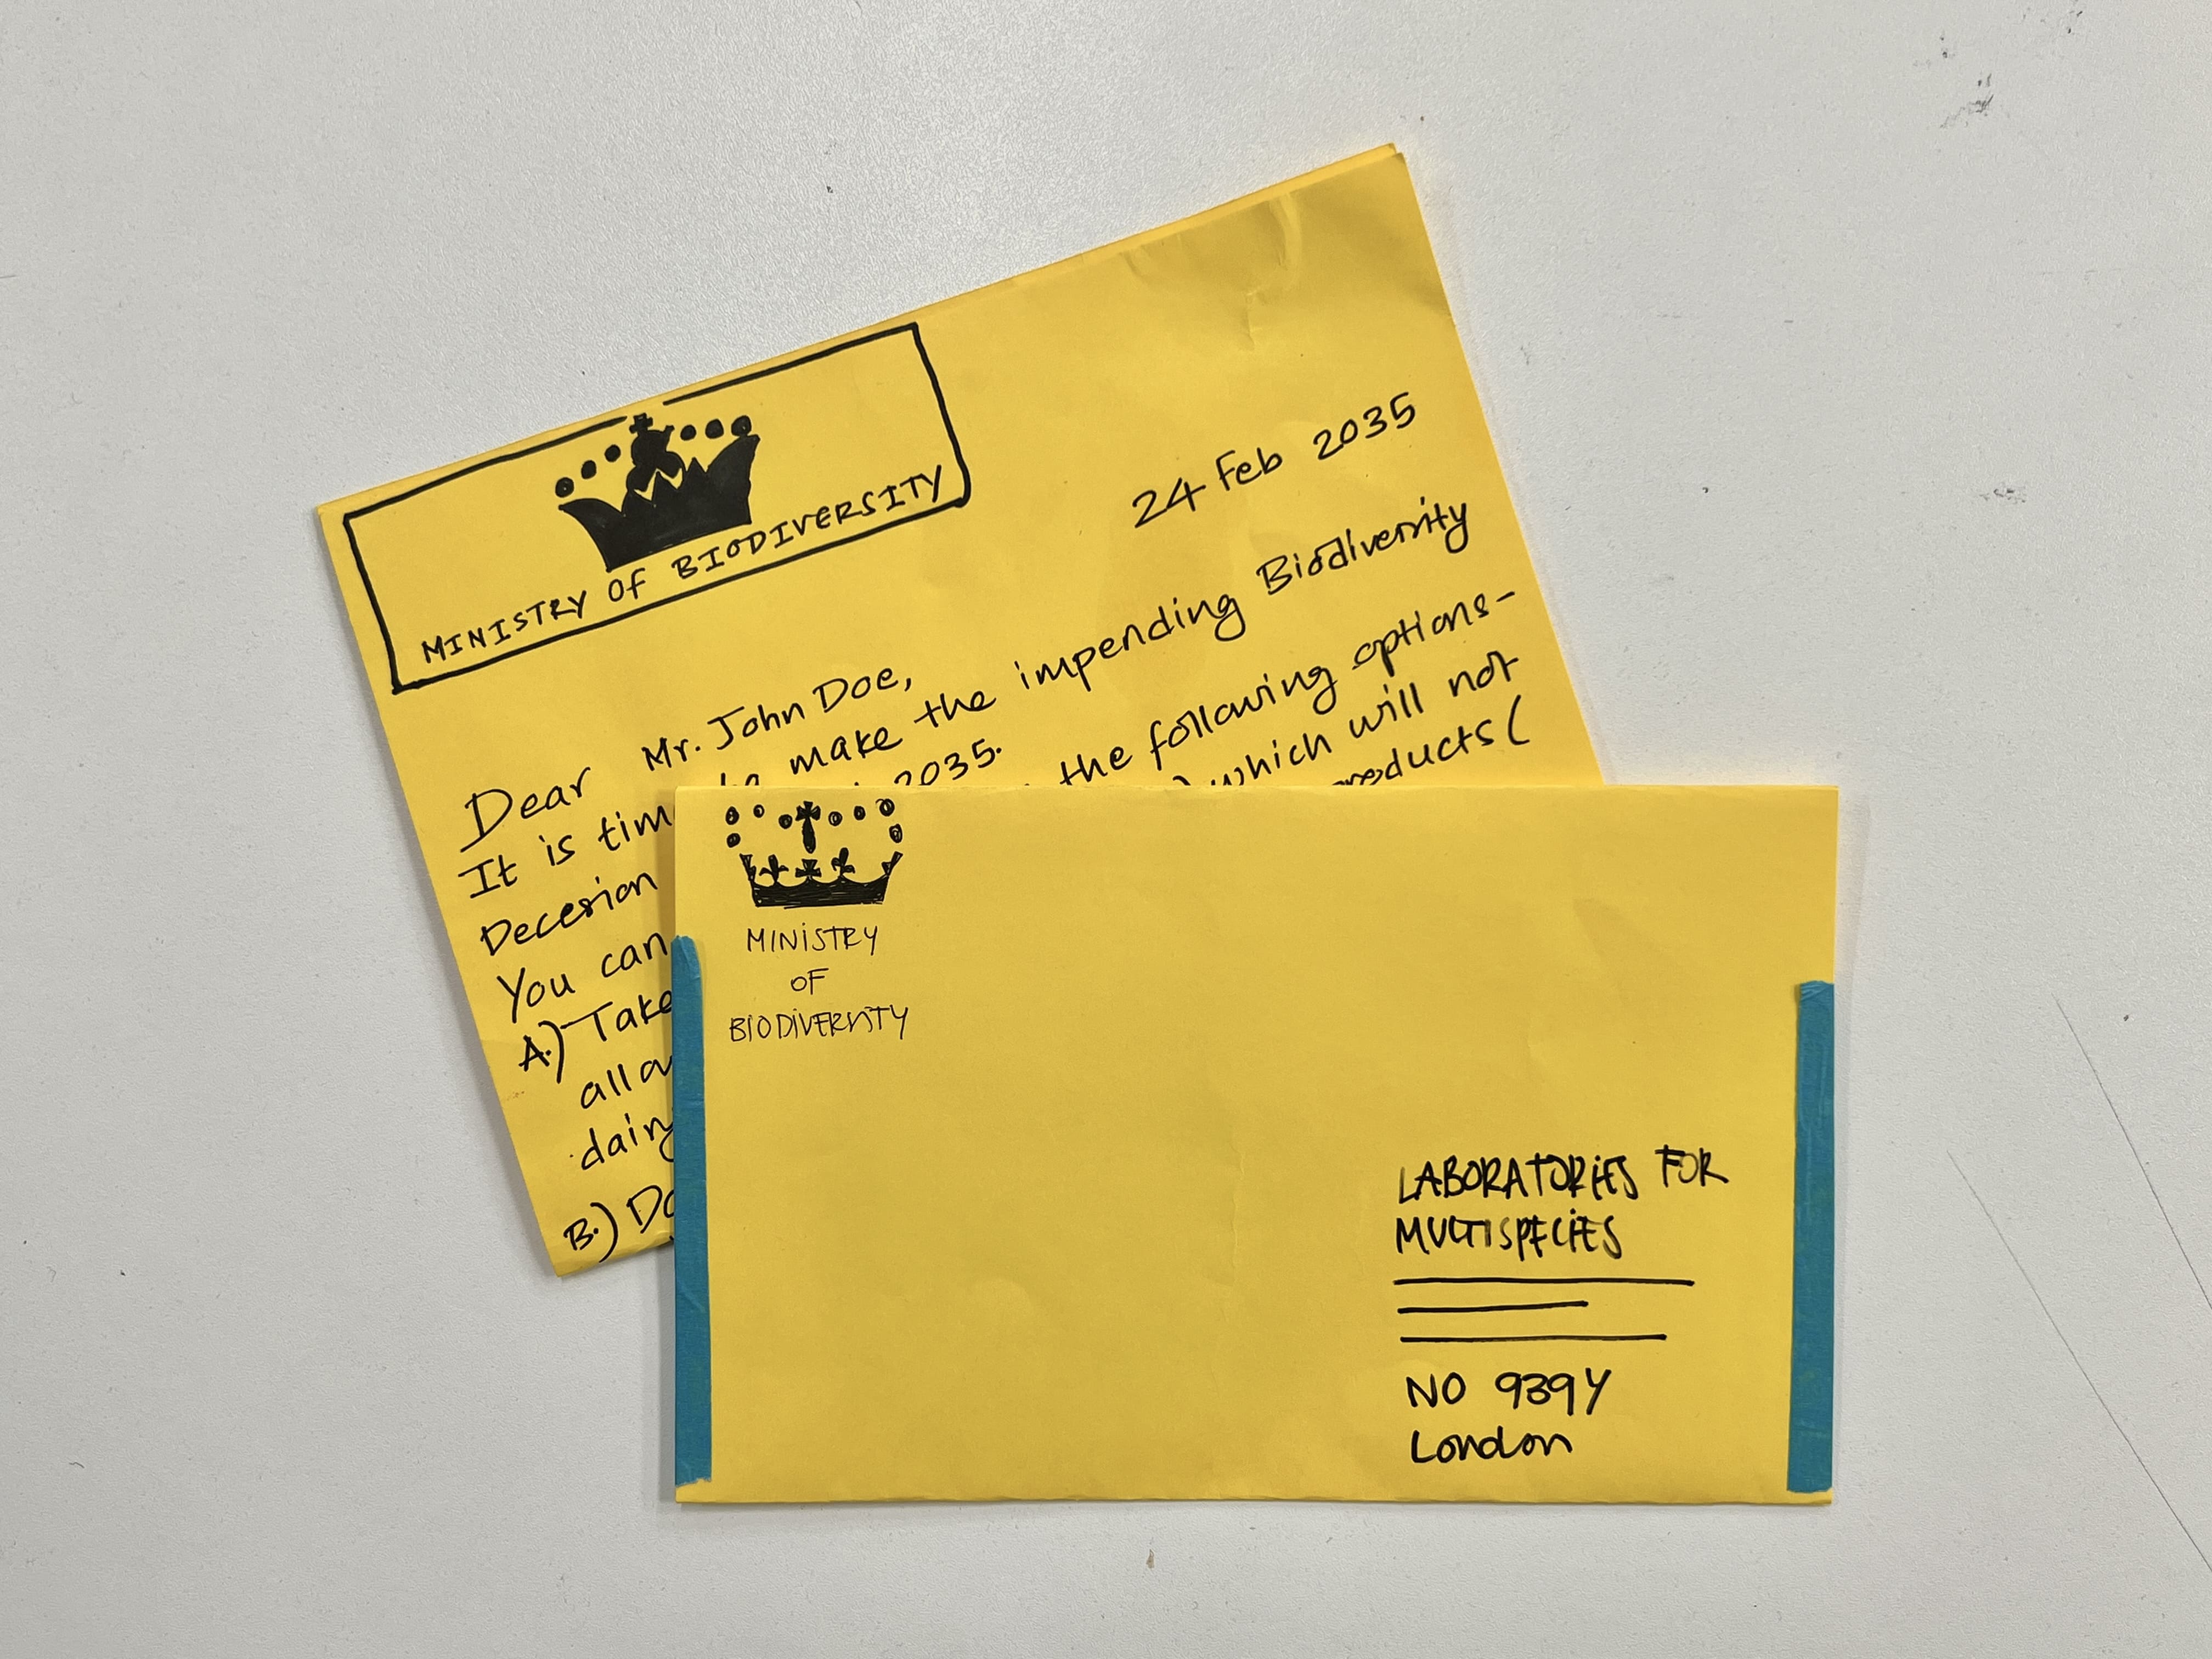 MINISTRY OF BIODIVERSITY
24 Feb 2035
Dear Mr. John Doe,
It is time to make the impending Biodiversity
Decesion 2035.
You can the following options-
A.) Take which will not
products (
B.)
MINISTRY
OF
BIODIVERSITY
LABORATORIES FOR
MULTISPECIES
NO 939Y
London